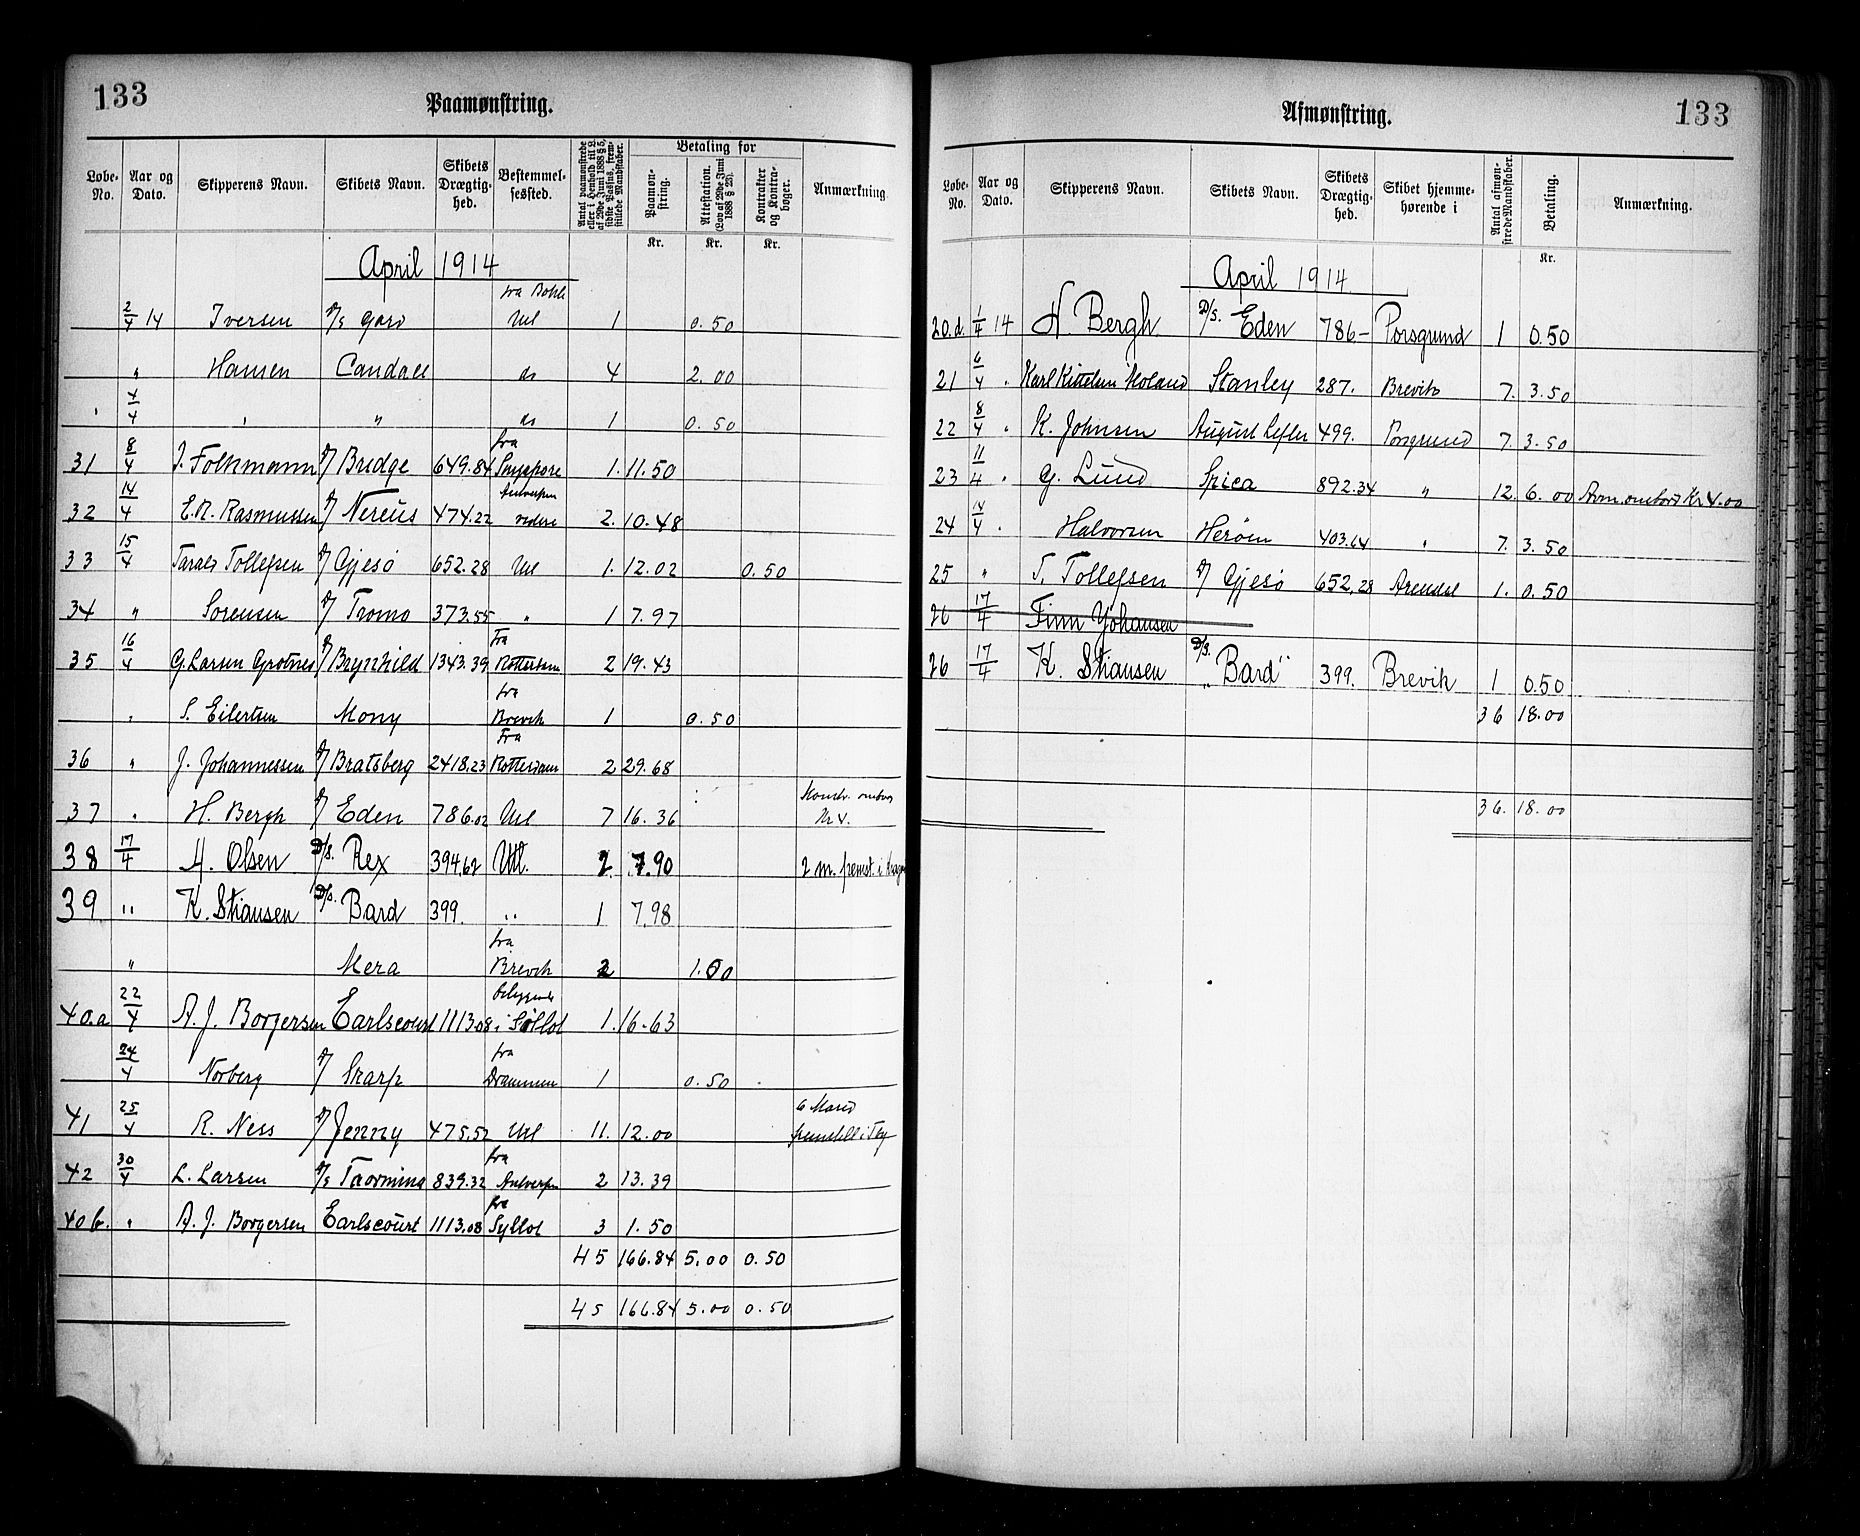 133
Paamønstring.
Løbe-No. | Aar og Dato. | Skipperens Navn. | Skibets Navn. | Skibets Drægtig-hed. | Bestemmel-sessted. | Antal paamønstrede eller i Henhold til L. af 29de Juni 1888 § 5, sidste Passus, frem-stillede Mandskaber. | Betaling for | Paamøn-string. Kr. | Attestation. (Lov af 29de Juni 1888 § 23). Kr. | Kontrakter og Kontra-bøger. Kr. | Anmærkning.
April 1914
2/4 14 Iversen D/s Gard fra Bohle Utl 1 0.50
" Hansen Candace do 4 2.00
4/4 " " do 1 0.50
31 8/4 J. Folkmann D/ Bridge 649.84 fra 1. 11.50
32 14/4 E.R. Rasmussen D/ Nereus 474.22 Antwerpen videre 2. 10.48
33 15/4 Tarald Tollefsen D/ Gjesø 652.28 Utl 1. 12.02 0.50
34 " Sørensen D/ Tromo 373.55 " 1 7.97
35 16/4 G. Larsen Grotnes D/ Brynhild 1343.39 Fra Rotterdam 2 19.43
" S. Eilertsen Mony fra Brevik 1 0.50
36 " J. Johannessen D/ Bratsberg 2418.23 Fra Rotterdam 2 29.68
37 " H. Bergh D/ Eden 786.02 Utl 7 16.36 ombord Kr 4.
38 17/4 H. Olsen D/S. Rex 394,62 Utl. 2 7.90 2 m. fremst. i
39 " K. Stiansen D/S. Bard 399. " 1 7.98
" Mera fra Brevik 2 1.00
40.a 22/4 A. J. Borgersen Earlscourt 1113.08 i 1. 16.63
24/4 Norberg D/ Skarp fra Drammen 1 0.50
41 25/4 R. Ness D/ Jenny 475.52 Utl 11. 12.00 6 Mand
42 30/4 L. Larsen D/s Taormina 839.32 fra Antwerpen 2 13.39
40 b. " A. J. Borgersen Earlscourt 1113.08 fra 3 1.50
45 166.84 5.00 0.50
45 166.84 5.00 0.50
Afmønstring.
133
Løbe-No. | Aar og Dato. | Skipperens Navn. | Skibets Navn. | Skibets Drægtig-hed. | Skibet hjemme-hørende i | Antal afmøn-strede Mandskaber. | Betaling. Kr. | Anmærkning.
April 1914
20.d. 1/4 14 H. Bergh D/S. Eden 786- Porsgrund 1 0.50
21 6/4 " Karl Kittelsen Moland Stanley 287. Brevik 7. 3.50
22 8/4 " K. Johnsen August Leffler 499. Porsgrund 7. 3.50
23 11/4 " G. Lund Spica 892.34 " 12. 6.00 Avm. ombord Kr 4.00
24 14/4 " Halvorsen Herøen 403.64 " 7. 3.50
25 " T. Tollefsen D/ Gjesø 652,28 Arendal 1. 0.50
26 17/4 Finn Johansen
26 17/4 K. Stiansen D/S. "Bard" 399. Brevik 1 0.50
36 18.00
36. 18.00